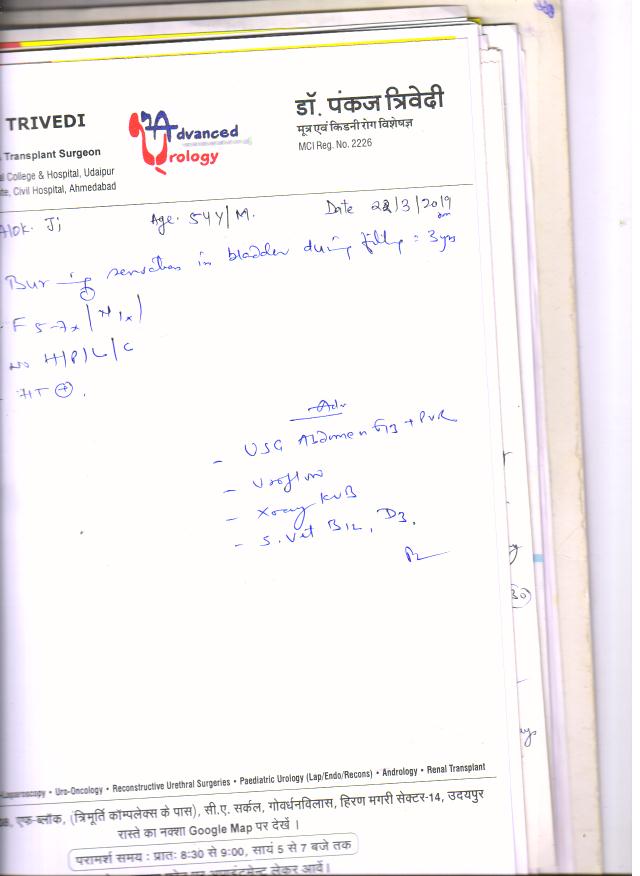 TRIVEDI
Transplant Surgeon
College & Hospital, Udaipur
Civil Hospital, Ahmedabad
Advanced
Urology
डॉ. पंकज त्रिवेदी
मूत्र एवं किडनी रोग विशेषज्ञ
MCI Reg. No. 2226
Alok Ji Age. 54Y/M. Date 22/3/2019
Burning sensation in bladder during filling = 3 yrs
F 5-7x/N 1x/
No H/P/L/C
HT ⊕.
Adv
- USG Abdomen + PVR
- Uroflow
- Xray KUB
- S. Vit B12, D3.
Laparoscopy • Uro-Oncology • Reconstructive Urethral Surgeries • Paediatric Urology (Lap/Endo/Recons) • Andrology • Renal Transplant
एफ-ब्लॉक, (त्रिमूर्ति कॉम्पलेक्स के पास), सी.ए. सर्कल, गोवर्धनविलास, हिरण मगरी सेक्टर-14, उदयपुर
रास्ते का नक्शा Google Map पर देखें ।
परामर्श समय : प्रातः 8:30 से 9:00, सायं 5 से 7 बजे तक
लेकर आवें।